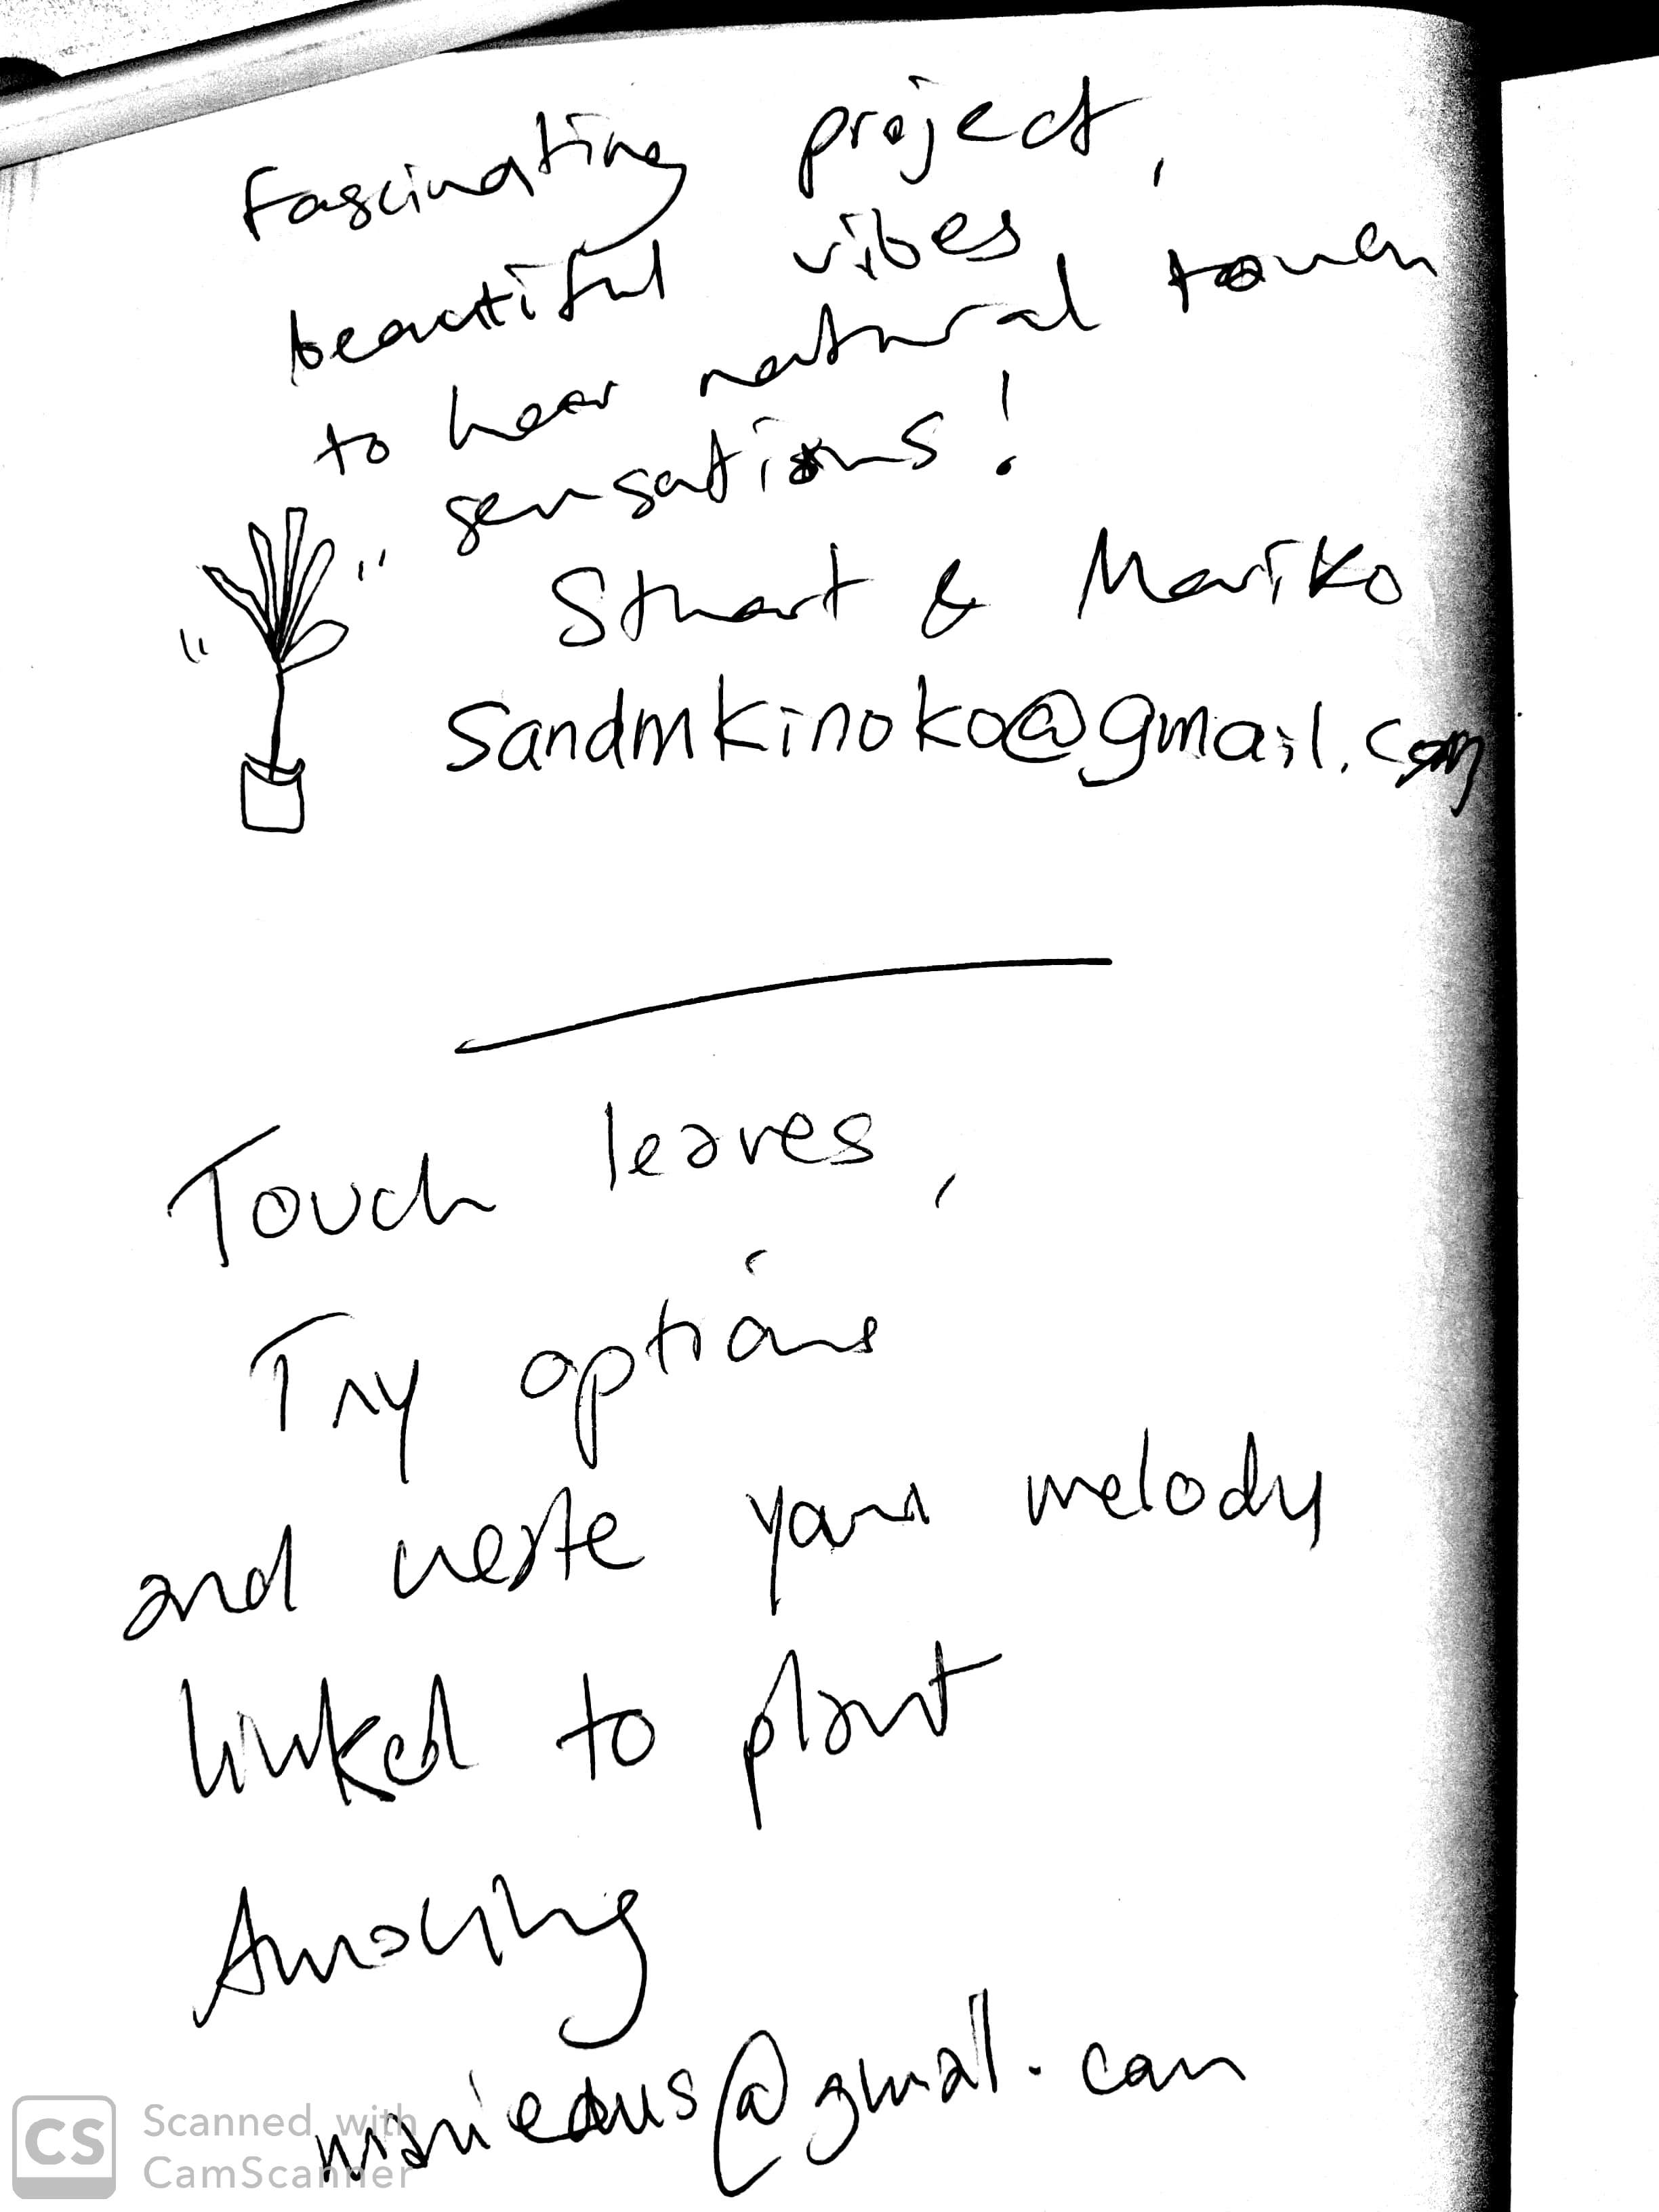 Fascinating project,
beautiful vibes
to hear natural touch
sensations!
Stuart & Mariko
sandmkinoko@gmail.com
Touch leaves,
Try options
and create your melody
linked to plant
Amazing
@gmail.com
CS Scanned with
CamScanner